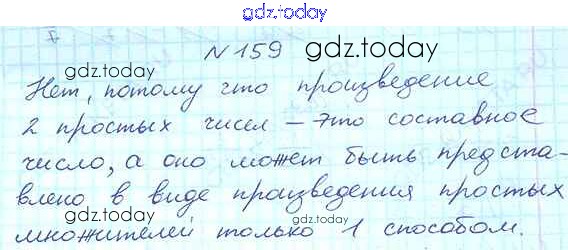 gdz.today
№159 gdz.today
gdz.today
Нет, потому что произведение
2 простых чисел – это составное
число, а оно может быть предста-
влено в виде произведения простых
множителей только 1 способом.
gdz.today
gdz.today
gdz.today